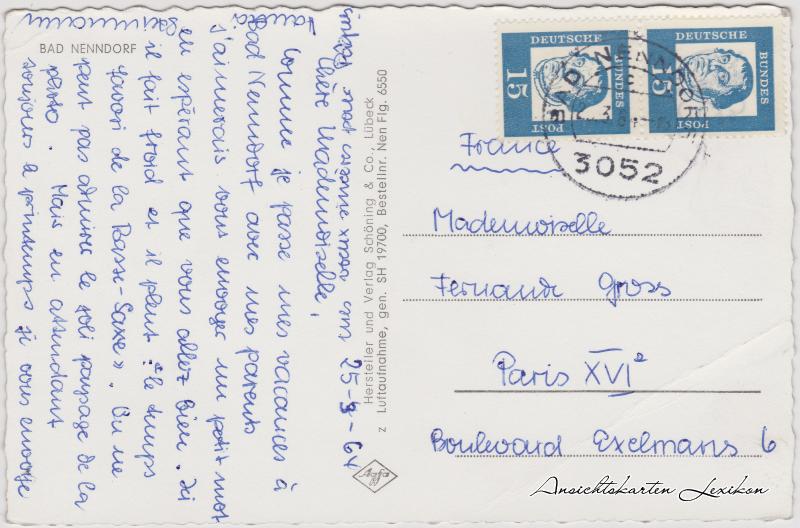 BAD NENNDORF
25-3-64
Chère Mademoiselle,
Comme je passe mes vacances à
Bad Nenndorf avec mes parents
j'aimerais vous envoyer un petit mot
en espérant que vous allez bien. Ici
il fait froid et il pleut: "le temps
favori de la Basse-Saxe". On ne
peut pas admirer le joli paysage de la
photo. Mais en attendant
toujours le printemps je vous envoie
Hersteller und Verlag Schöning & Co., Lübeck
z Luftaufnahme, gen. SH 19700, Bestellnr. Nen Flg. 6550
Agfa
DEUTSCHE
BUNDES
POST
15
DEUTSCHE
BUNDES
POST
15
BAD NENNDORF
3052
France
Mademoiselle
Fernande Gross
Paris XVIe
Boulevard Exelmans 6
Ansichtskarten Lexikon